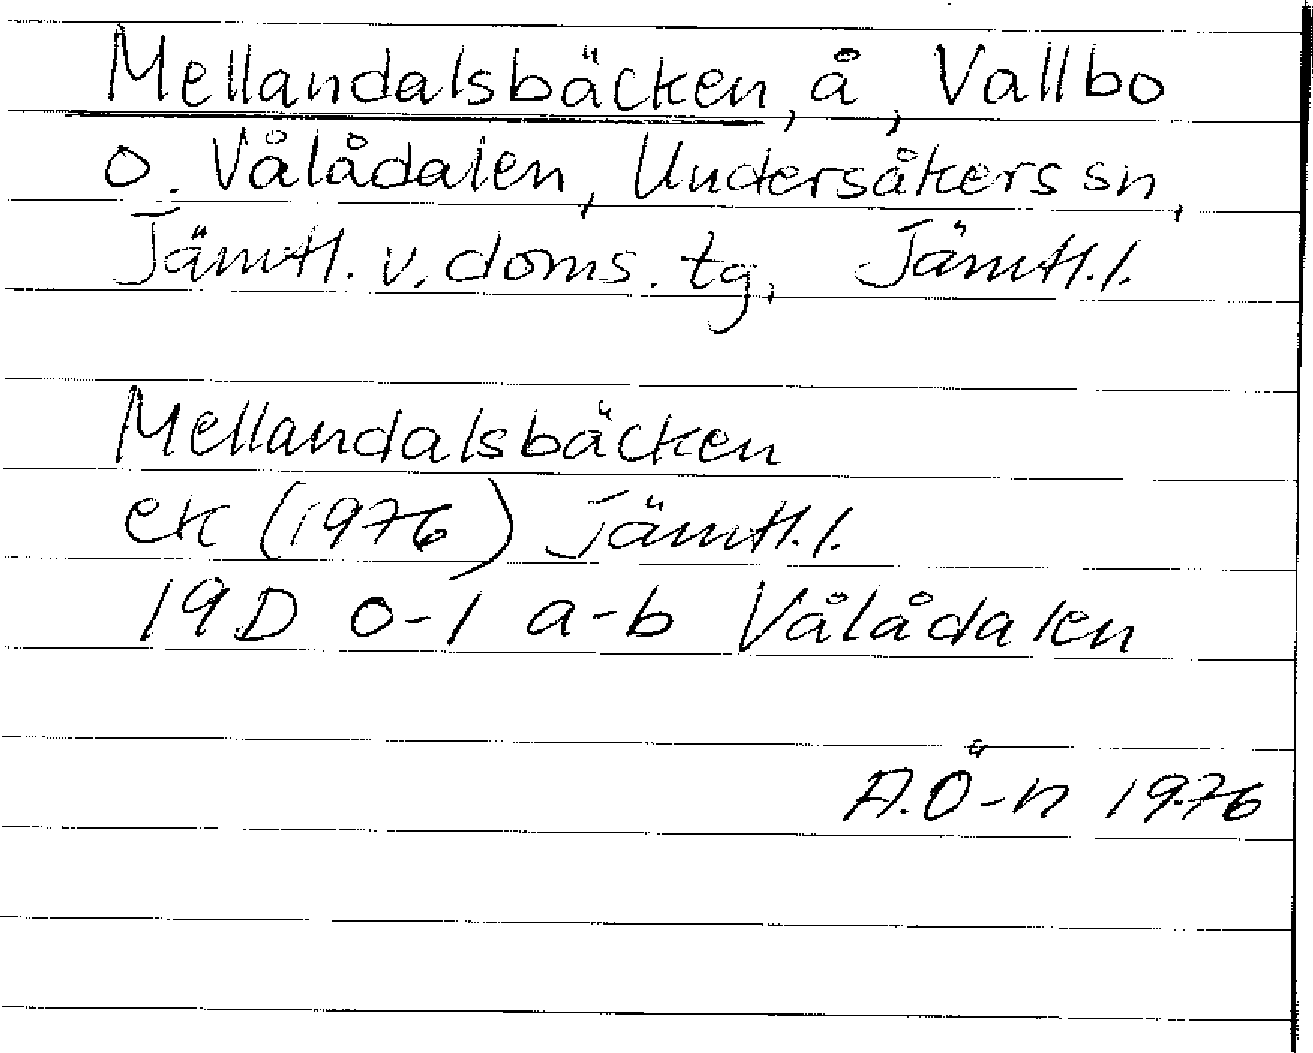 Mellandalsbäcken, å, Vallbo
o. Vålådalen, Undersåkers sn,
Jämtl. v. doms. tg, Jämtl. l.
Mellandalsbäcken
ek (1976) Jämtl. l.
19D 0-1 a-b Vålådalen
A.Ö-n 1976